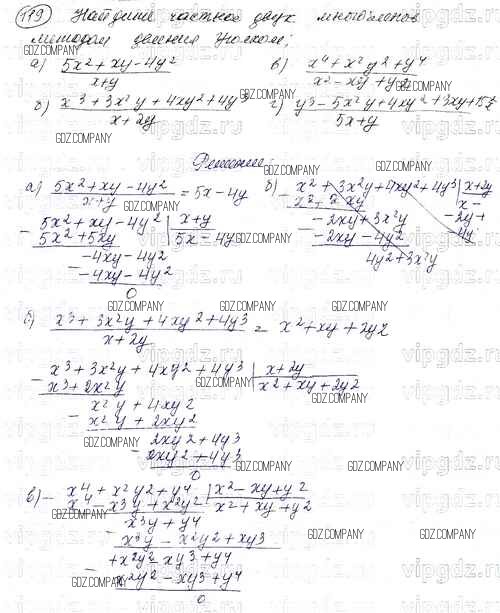 119 Найдите частное двух многочленов
методом деления уголком:
а) 5x²+xy-4y² / x+y в) x⁴+x²y²+y⁴ / x²-xy+y²
б) x³+3x²y+4xy²+4y³ / x+2y г) y³-5x²y+4xy²+3xy+15x / 5x+y
Решение:
а) 5x²+xy-4y² / x+y = 5x-4y б) x²+3x²y+4xy²+4y³ | x+2y
- 5x²+xy-4y² | x+y
5x²+5xy | 5x-4y
-4xy-4y²
-4xy-4y²
0
x²+2xy
-2xy+3x²y
-2xy-4y²
4y²+3x²y
б) x³+3x²y+4xy²+4y³ / x+2y = x²+xy+2y2
- x³+3x2y+4xy2+4y3 | x+2y
x³+2x²y | x²+xy+2y2
- x²y+4xy2
x²y+2xy2
- 2xy2+4y3
2xy2+4y3
0
в) - x⁴+x²y2+y4 | x²-xy+y2
x⁴-x3y+x²y2 | x²+xy+y2
x³y+y4
x³y-x²y2+xy3
+x²y2 xy3+y4
- x2y2-xy3+y4
0
GDZ.COMPANY
vipgdz.ru